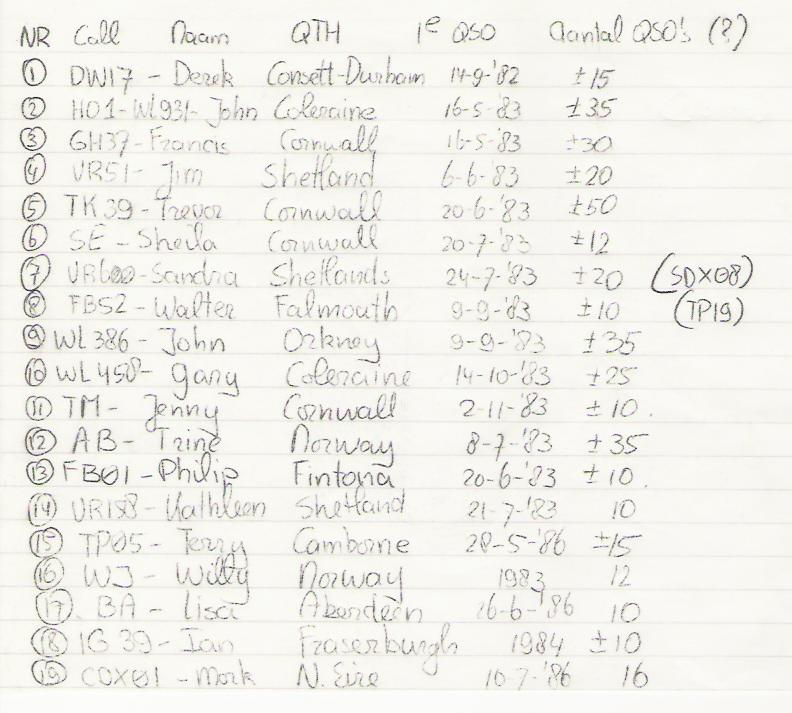 NR Call Naam QTH 1e QSO Aantal QSO's (?)
1 DW17 - Derek Consett-Durham 14-9-'82 ±15
2 HO1-WL931- John Coleraine 16-5-'83 ±35
3 GH37-Francis Cornwall 16-5-'83 ±30
4 VR51- Jim Shetland 6-6-'83 ±20
5 TK39-Trevor Cornwall 20-6-'83 ±50
6 SE - Sheila Cornwall 20-7-'83 ±12
7 VR600-Sandra Shetlands 24-7-'83 ±20 (SDX08)
8 FB52 - Walter Falmouth 9-9-'83 ±10 (TP19)
9 WL386 - John Orkney 9-9-'83 ±35
10 WL458- Gary Coleraine 14-10-'83 ±25
11 TM- Jenny Cornwall 2-11-'83 ±10.
12 AB- Trine Norway 8-7-'83 ±35
13 FB01-Philip Fintona 20-6-'83 ±10.
14 VR158-Kathleen Shetland 21-7-'83 10
15 TP05- Terry Camborne 28-5-'86 ±15
16 WJ - Willy Norway 1983 12
17. BA - Lisa Aberdeen 26-6-'86 10
18 IG39-Ian Fraserburgh 1984 ±10
19 CDX01 - Mark N. Eire 10-7-'86 16